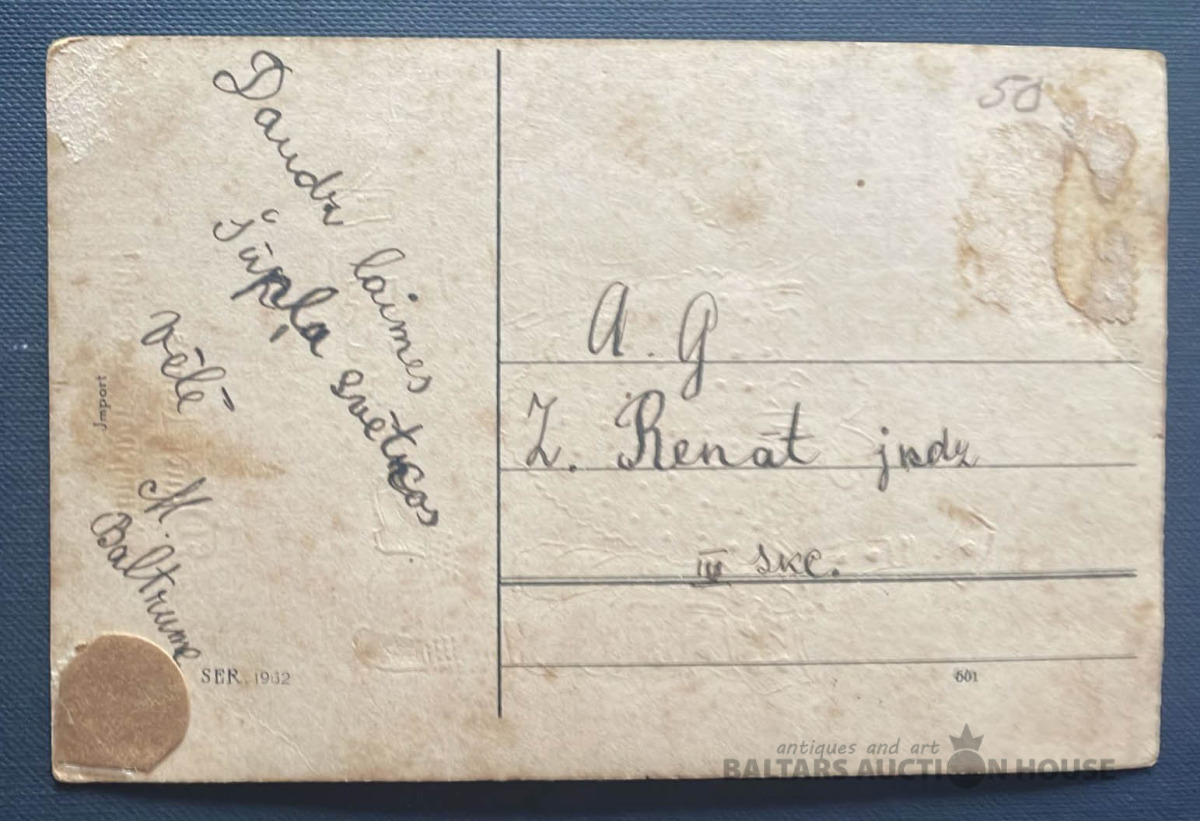 Daudz laimes
šūpļa svētkos
vēlē
M.
Baltrume
Jmport
SER. 1932
50
A. G
Z. Renat jkdz
III skc.
501
antiques and art
BALTARS AUCTION HOUSE